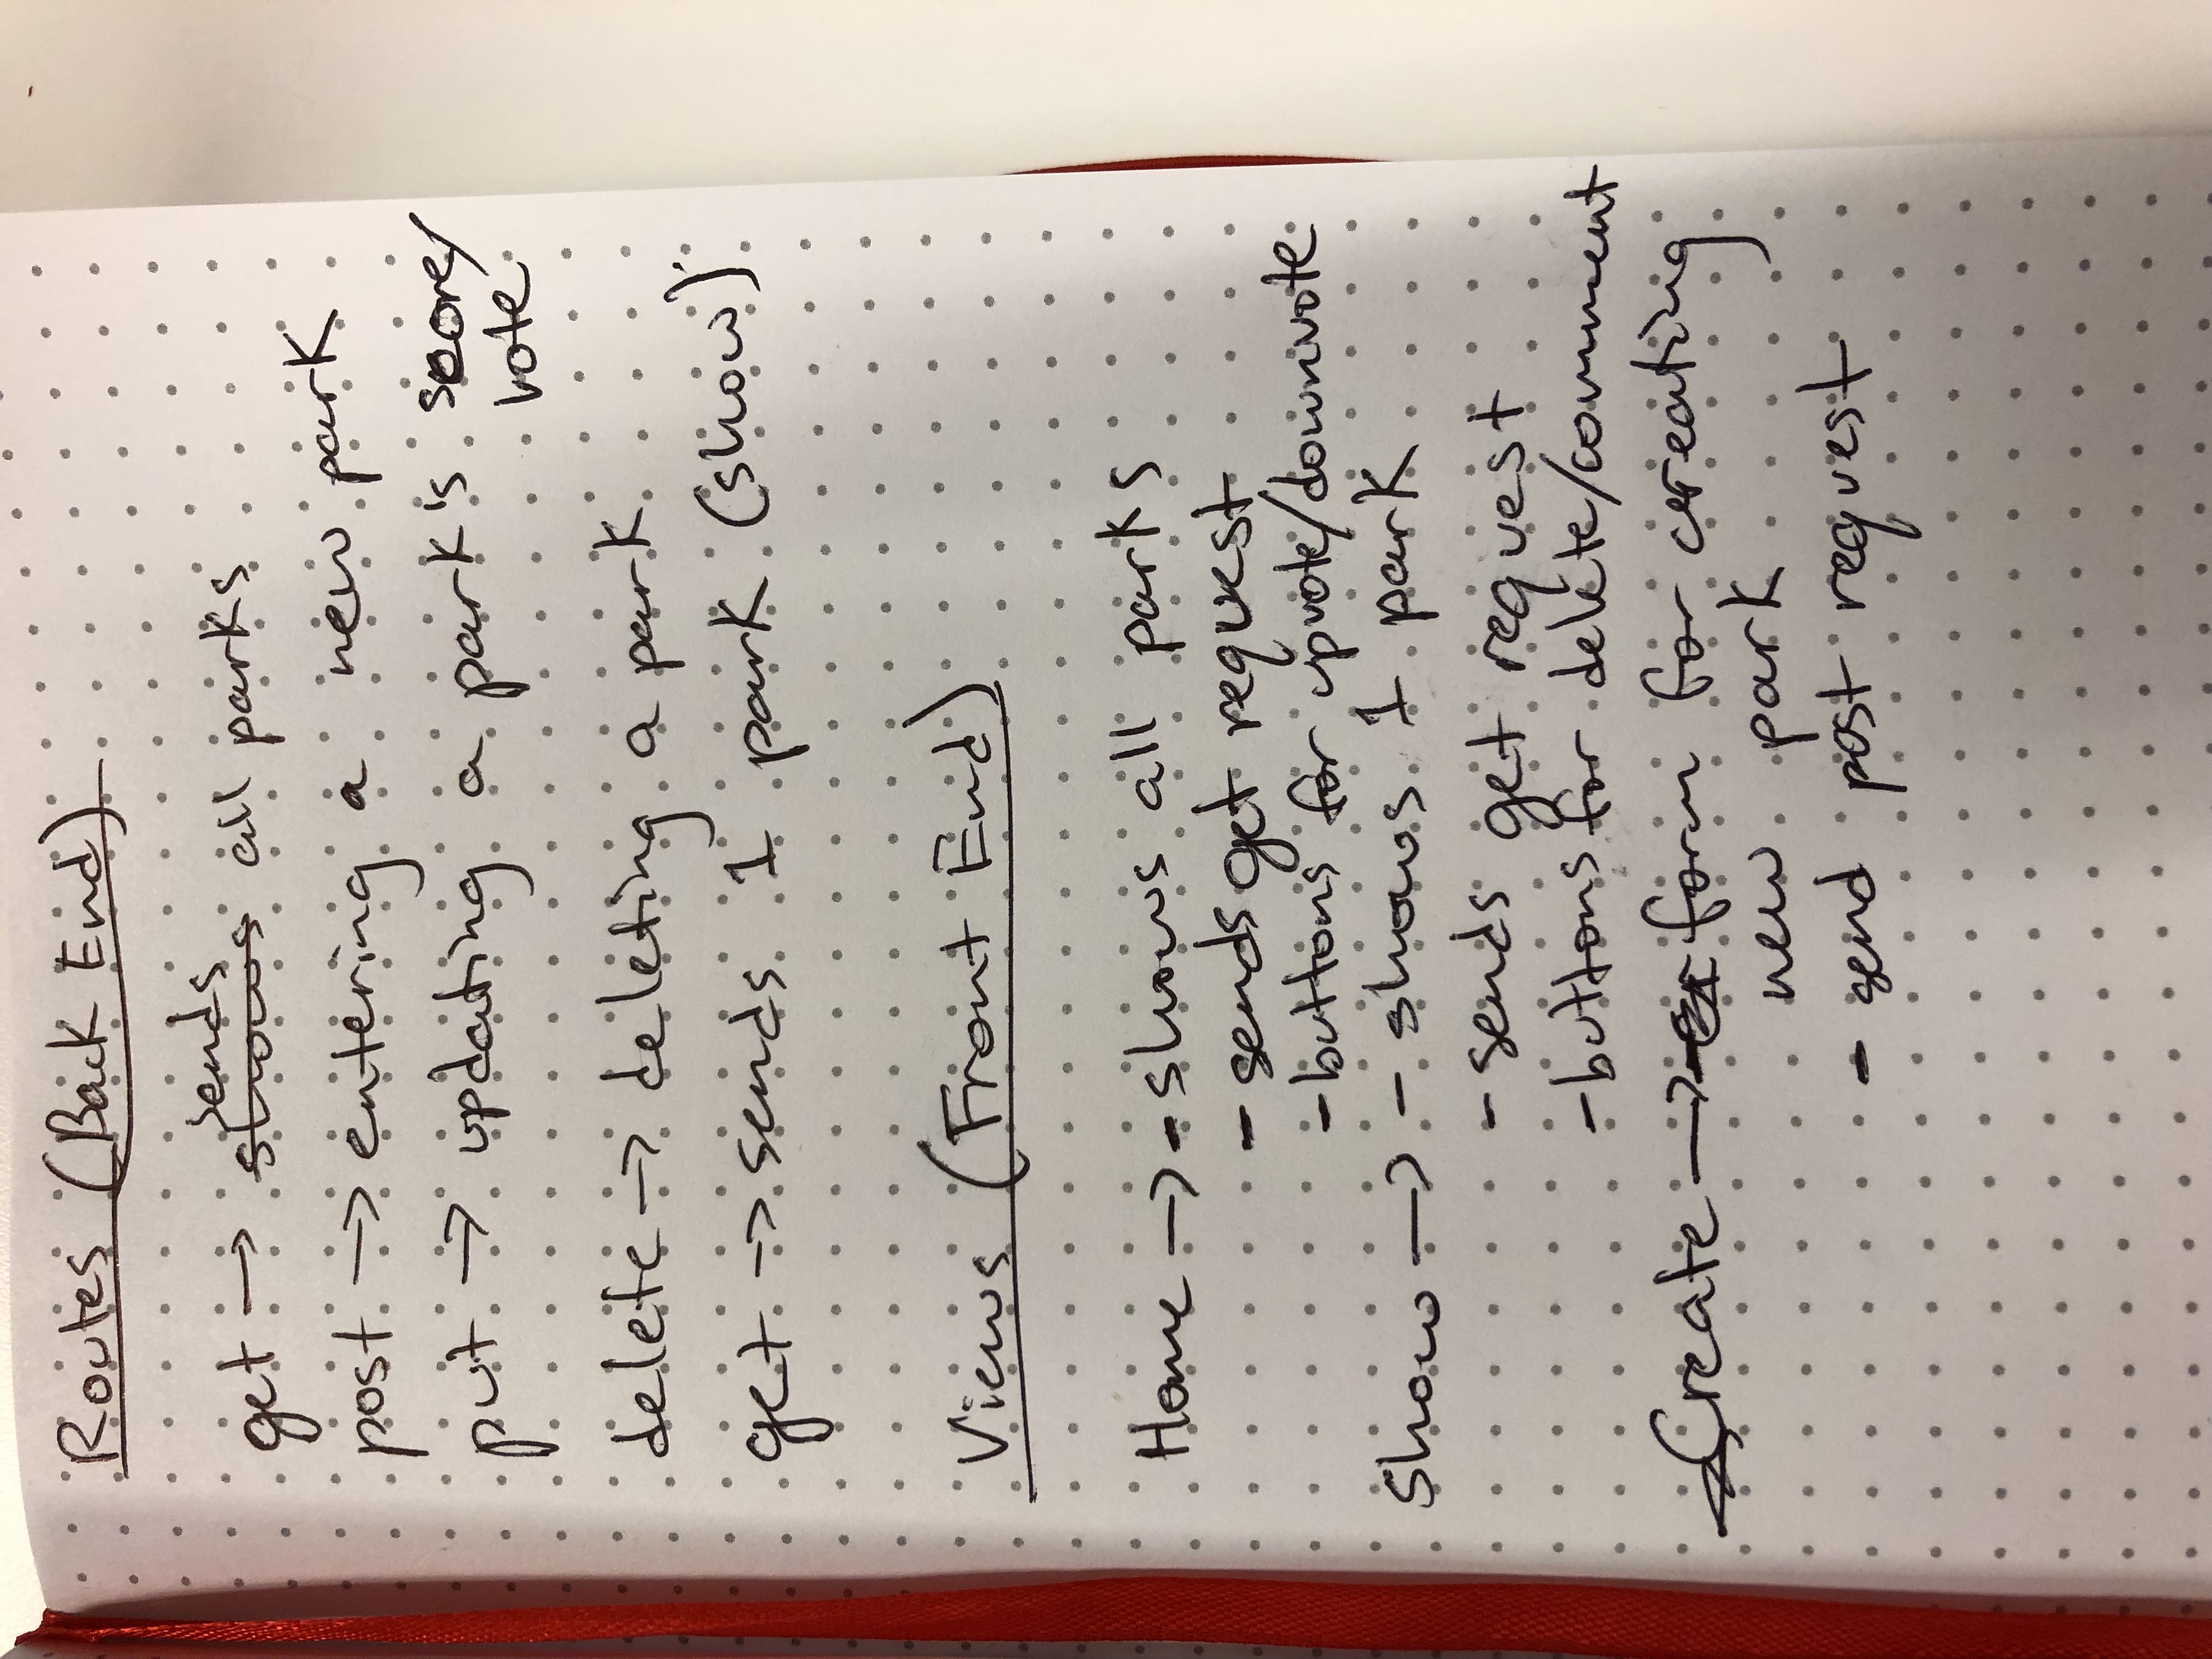 Routes (Back End)
sends
get → shows all parks
post → entering a new park
put → updating a park's score/
vote
delete → deleting a park
get → sends 1 park (show)
Views (Front End)
Home → - shows all parks
- sends get request
- buttons for upvote/downvote
Show → - shows 1 park
- sends get request
- buttons for delete/comment
Create → form for creating
new park
- send post request